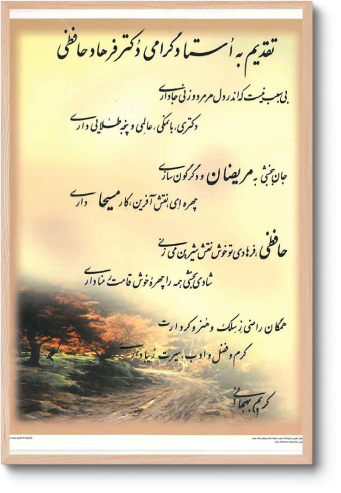 تقدیم به اُستاد گرامی دُکتر فرهاد حافظی
بی سبب نیست که اندر دل هر مرد و زنی جا داری
دکتری، با نمکی، عالِمی و پنجه طلایی داری
جان ببخشی به مریضان و دگرگون سازی
چهره ای نقش آفرین، کار مسیحا داری
حافظی، فرهادی تو خوش نقش شیرین می زنی
شادی بخشی همه را چهرهٔ خوش قامت رعنا داری
همگان راضی ز سِلک و هنر و کردارت
کرم و فضل و ادب، سیرت زیبا داری
کریم بهجانی